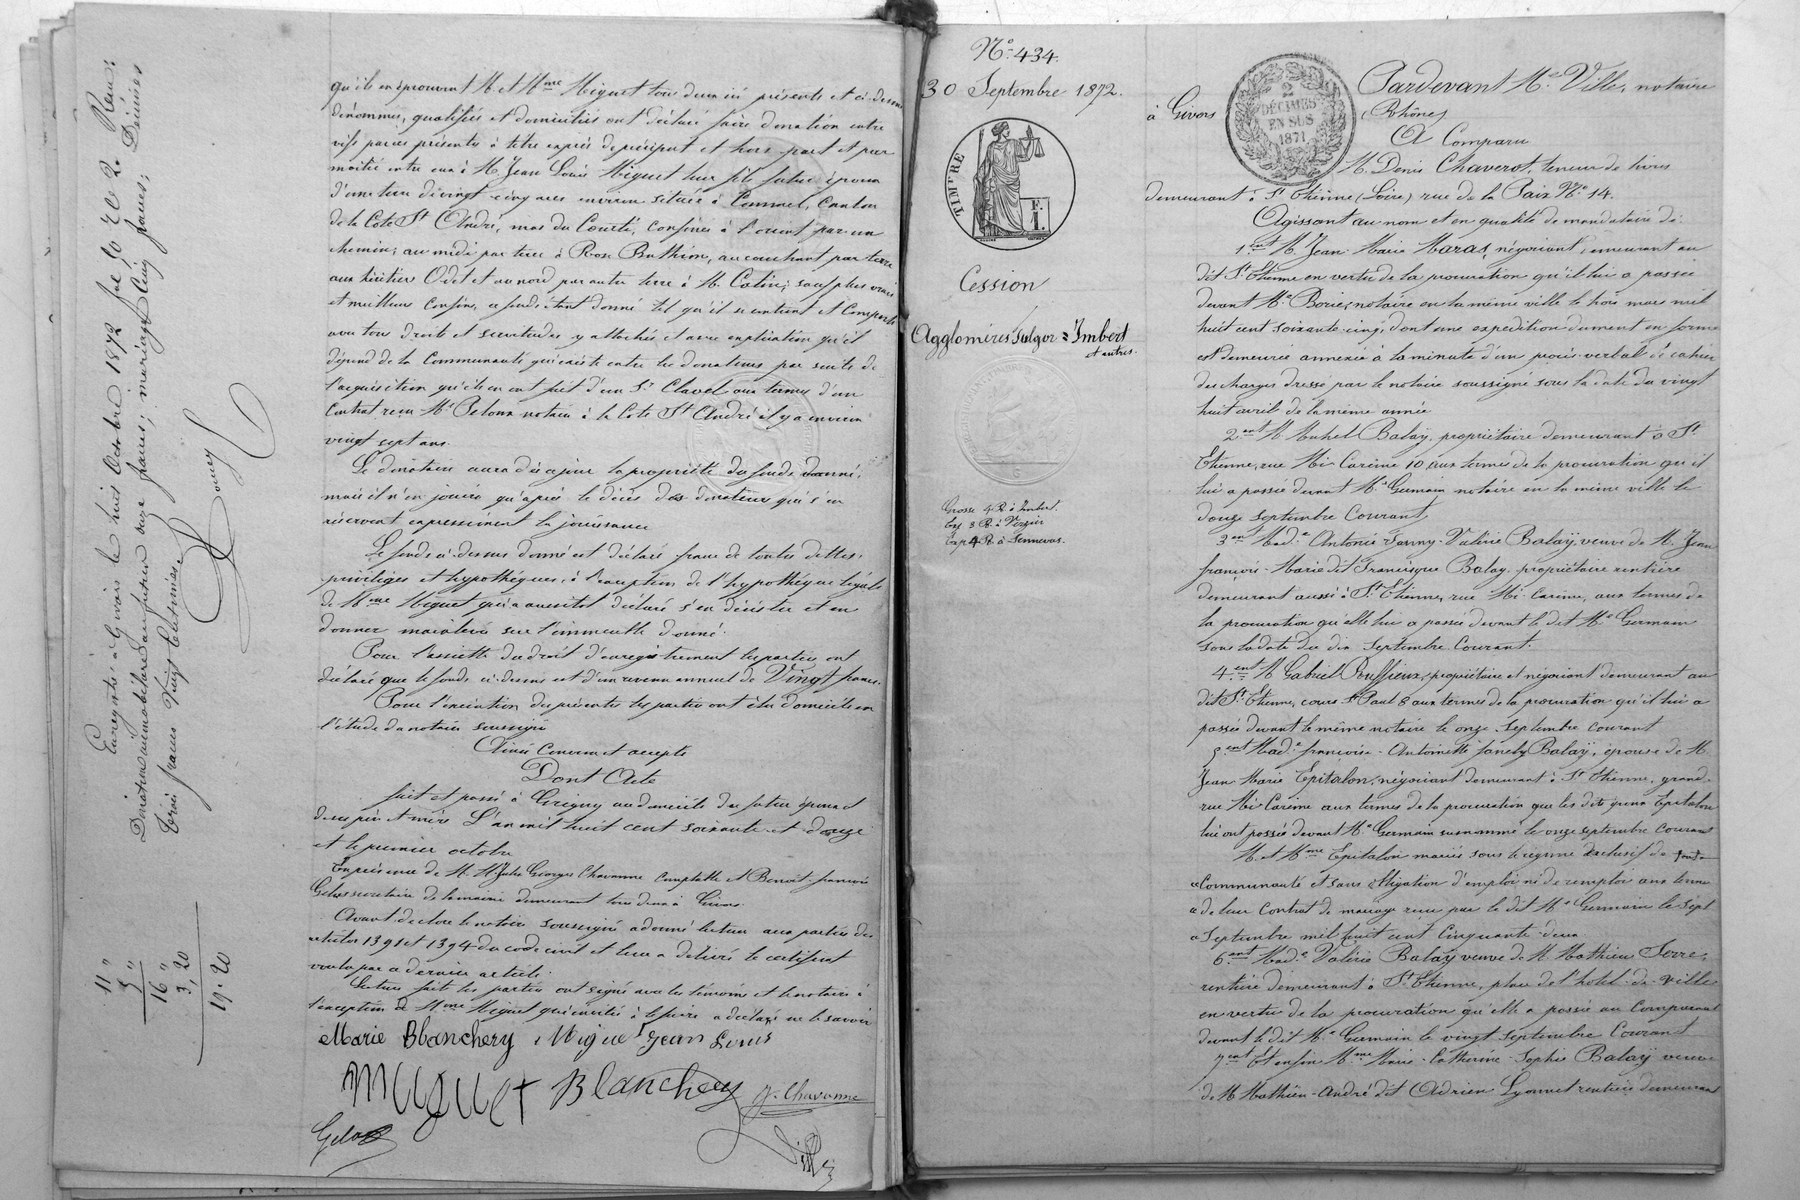 qu'ils en éprouvent M et Mme Miguet tous deux ici présents et ci-dessus
dénommés, qualifiés et domiciliés ont déclaré faire donation entre
vifs par ces présentes à titre exprès de préciput et hors part et par
moitié entre eux à M Jean Louis Miguet leur fils futur époux
d'une terre de vingt cinq ares environ située à Commel, Canton
de la Cote St André, mas du Courtil, Confinée à l'orient par un
chemin; au midi par terre à Rose Buthion, au couchant par terre
aux héritiers Odet et au nord par autre terre à M. Colin; sauf plus vrais
et meilleurs confins, ce fonds étant donné tel qu'il se contient et Comporte
avec tous droits et servitudes y attachés et avec explication qu'il
dépend de la Communauté qui existe entre les donateurs par suite de
l'acquisition qu'ils en ont fait d'un Sr Clavel aux termes d'un
Contrat reçu Me notaire à la Cote St André il y a environ
vingt sept ans.
Le donataire aura dès ce jour la propriété du fonds donné,
mais il n'en jouira qu'après le décès des donateurs qui s'en
réservent expressément la jouissance
Le fonds ci-dessus donné est déclaré franc de toutes dettes,
privilèges et hypothèques, à l'exception de l'hypothèque légale
de Mme Miguet qui a aussitôt déclaré s'en désister et en
donner mainlevée sur l'immeuble donné.
Pour l'assiette du droit d'enregistrement les parties ont
déclaré que le fonds ci-dessus est d'un revenu annuel de Vingt francs.
Pour l'exécution des présentes les parties ont élu domicile en
l'étude du notaire soussigné
Ainsi Convenu et accepté
Dont Acte
fait et passé à Grigny au domicile du futur époux et
de ses père et mère L'an mil huit cent soixante et douze
et le premier octobre
En présence de M. M. Jules Georges Chavanne Comptable et Benoit françois
Gelas secrétaire de la mairie demeurant tous deux à Givors.
Avant de clore le notaire soussigné a donné lecture aux parties des
articles 1391 et 1394 du code civil et leur a délivré le certificat
voulu par ce dernier article.
Lecture faite les parties ont signé avec les témoins et le notaire à
l'exception de Mme Miguet qui invitée à le faire a déclaré ne le savoir
Marie Blanchery Miguet Jean Louis
Miguet Blanchery J. Chavanne
Gelas
Ville
Enregistré à Givors le huit Octobre 1872 fol 90 Rc 2. Reçu:
Donation immobilière au futur onze francs; mariage Cinq francs; Décimes
trois francs Vingt Centimes.
11 "
5 "
16 "
3, 20
19. 20
No 434
30 Septembre 1872.
TIMBRE
Cession
Agglomérés Sulgor & Imbert
et autres.
Grosse 4 R à Imbert.
Exp 3 R à Verrier
Exp 4 R à Sennevas.
2
DÉCIMES
EN SUS
1871
Pardevant Me Ville, notaire
à Givors (Rhône)
A Comparu
M. Denis Chaverot, teneur de livres
demeurant à St Etienne (Loire) rue de la Paix No 14.
Agissant au nom et en qualité de mandataire de:
1ent M. Jean Marie Maras, négociant demeurant au
dit St Etienne en vertu de la procuration qu'il lui a passée
devant Me Borie, notaire en la même ville le trois mars mil
huit cent soixante-cinq, dont une expédition dument en forme
est demeurée annexée à la minute d'un procès-verbal de cahier
des charges dressé par le notaire soussigné sous la date du vingt
huit avril de la même année
2ent M Michel Balaÿ, propriétaire demeurant à St
Etienne, rue Mi Carême 10, aux termes de la procuration qu'il
lui a passée devant Me Germain notaire en la même ville le
douze septembre Courant
3ent Made Antonie Fanny-Valérie Balaÿ, veuve de M. Jean
françois-Marie dit Francisque Balaÿ, propriétaire rentière
demeurant aussi à St Etienne, rue Mi-Carême, aux termes de
la procuration qu'elle lui a passée devant le dit Me Germain
sous la date du dix septembre Courant.
4ent M Gabriel Ruffieux, propriétaire et négociant demeurant au
dit St Etienne, cours St Paul 8 aux termes de la procuration qu'il lui a
passée devant le même notaire le onze Septembre courant
5ent Made françoise-Antoinette fanély Balaÿ, épouse de M
Jean Marie Epitalon, négociant demeurant à St Etienne, grand-
rue Mi Carême aux termes de la procuration que les dits époux Epitalon
lui ont passée devant Me Germain susnommé le onze septembre courant
M. et Mme Epitalon mariés sous le régime exclusif de toute
Communauté et sans obligation d'emploi ni de remploi aux termes
de leur Contrat de mariage reçu par le dit Me Germain le sept
Septembre mil huit cent cinquante-deux
6ent Made Valérie Balaÿ veuve de M. Mathieu Serre,
rentière demeurant à St Etienne, place de l'hôtel-de-ville
en vertu de la procuration qu'elle a passée au Comparant
devant le dit Me Germain le vingt septembre Courant
7ent Et enfin Mme Marie-Catherine-Sophie Balaÿ veuve
de M Mathieu-André dit Adrien Lyonnet rentière demeurant